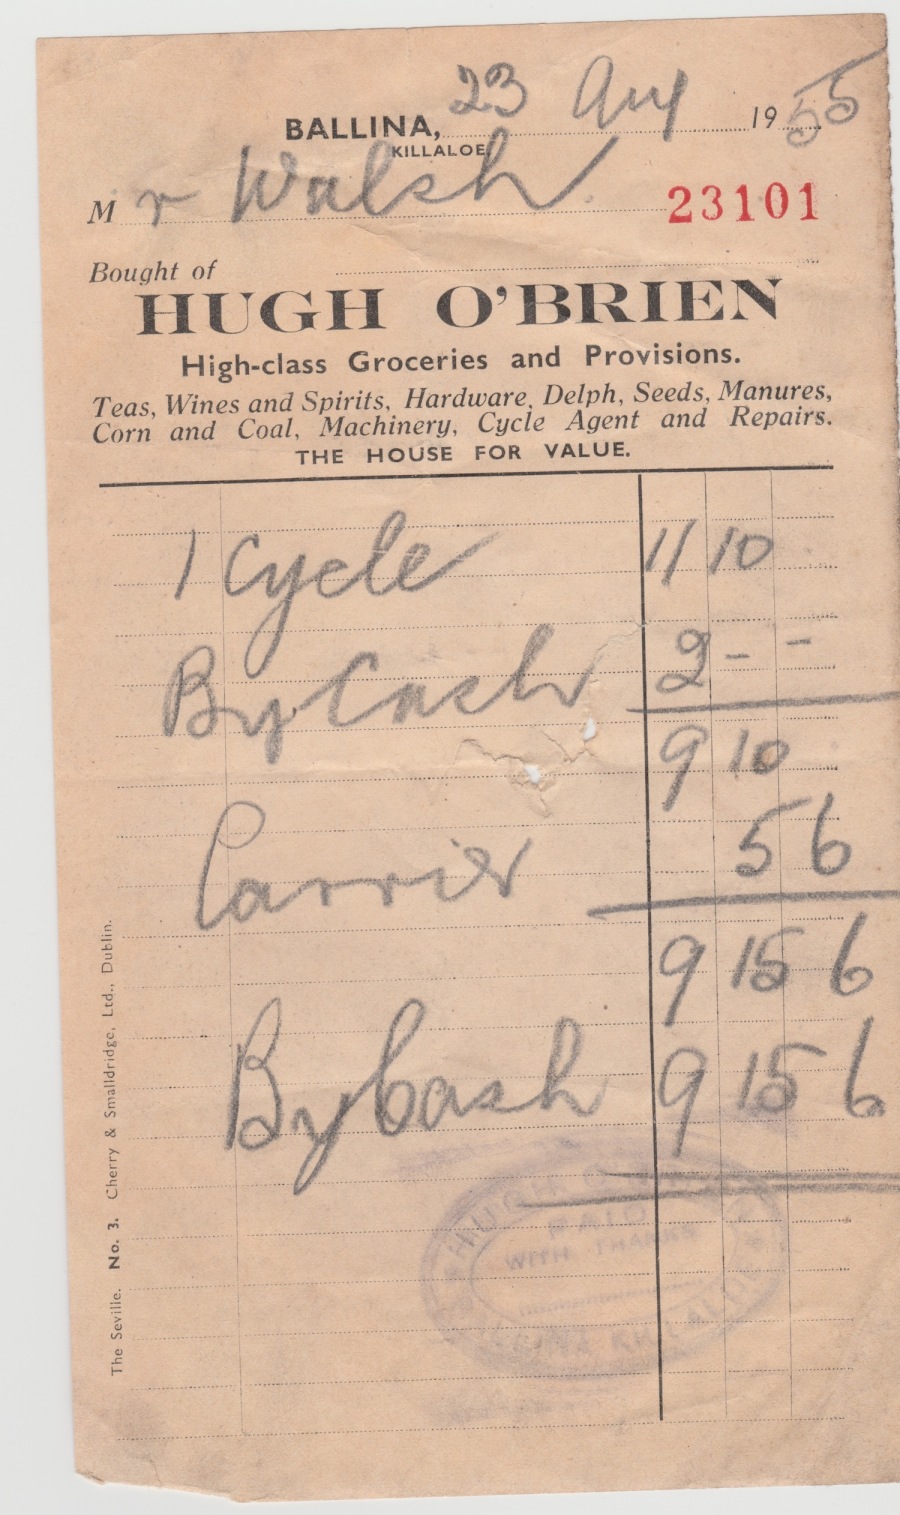 BALLINA, 23 Aug 1955
KILLALOE
Mr Walsh. 23101
Bought of
HUGH O'BRIEN
High-class Groceries and Provisions.
Teas, Wines and Spirits, Hardware, Delph, Seeds, Manures,
Corn and Coal, Machinery, Cycle Agent and Repairs.
THE HOUSE FOR VALUE.
1 Cycle 11 10
By Cash 2 - -
9 10
Carrier 5 6
9 15 6
By Cash 9 15 6
HUGH
PAID
WITH THANKS
KILLALOE
The Seville. No. 3. Cherry & Smalldridge, Ltd., Dublin.